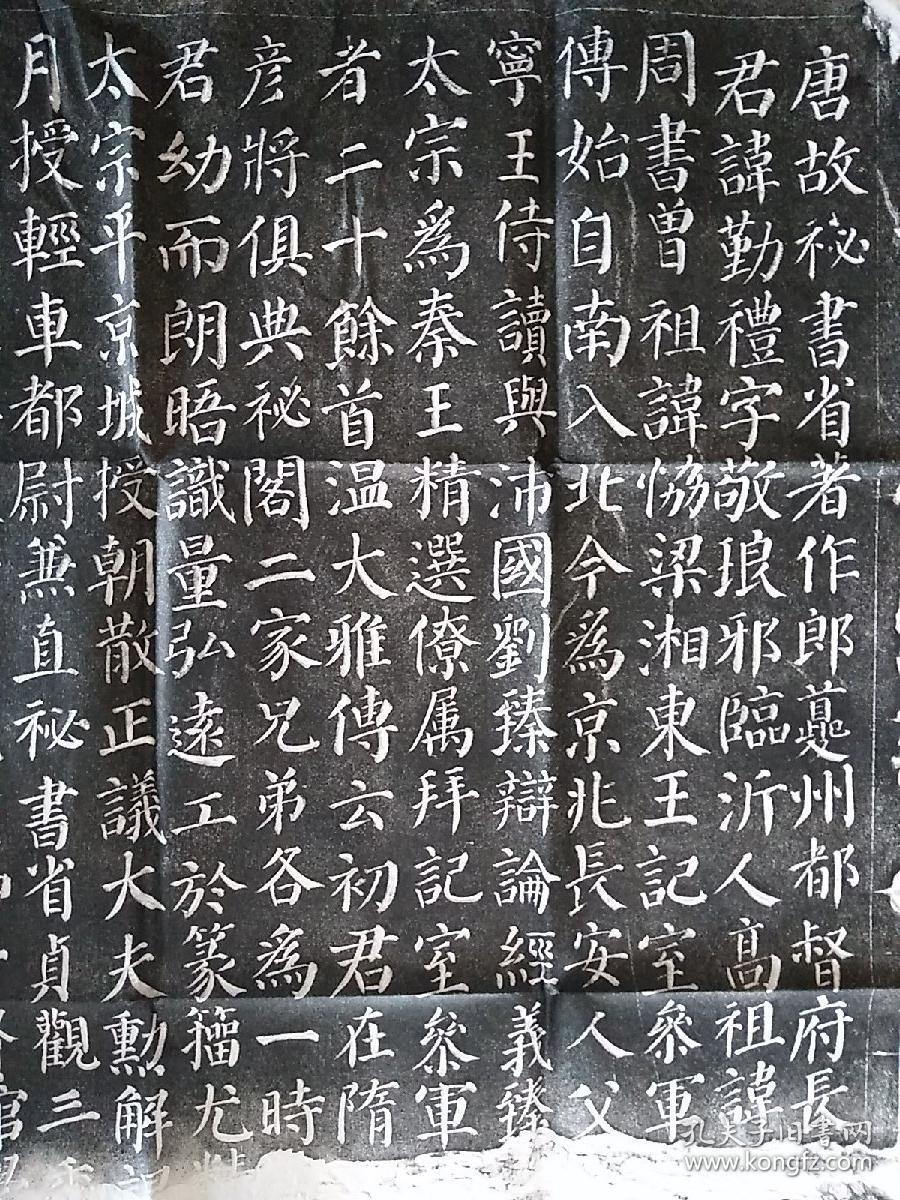 唐故秘書省著作郎夔州都督府長
君諱勤禮字敬琅邪臨沂人高祖諱
周書曾祖諱恊梁湘東王記室叅軍
傳始自南入北今為京兆長安人父
寧王侍讀與沛國劉臻辯論經義臻
太宗為秦王精選僚属拜記室叅軍
者二十餘首温大雅傳云初君在隋
彦將俱典祕閣二家兄弟各為一時
君幼而朗晤識量弘遠工於篆籀尤
太宗平京城授朝散正議大夫勲解
月授輕車都尉兼直祕書省貞觀三
孔夫子旧書网
www.kongfz.com